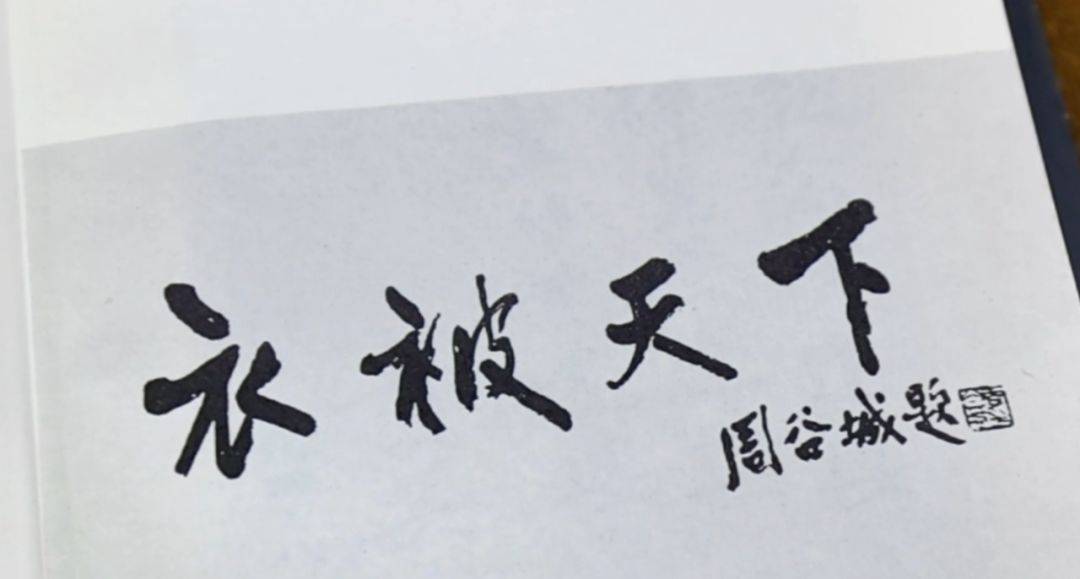 衣被天下
周谷城题